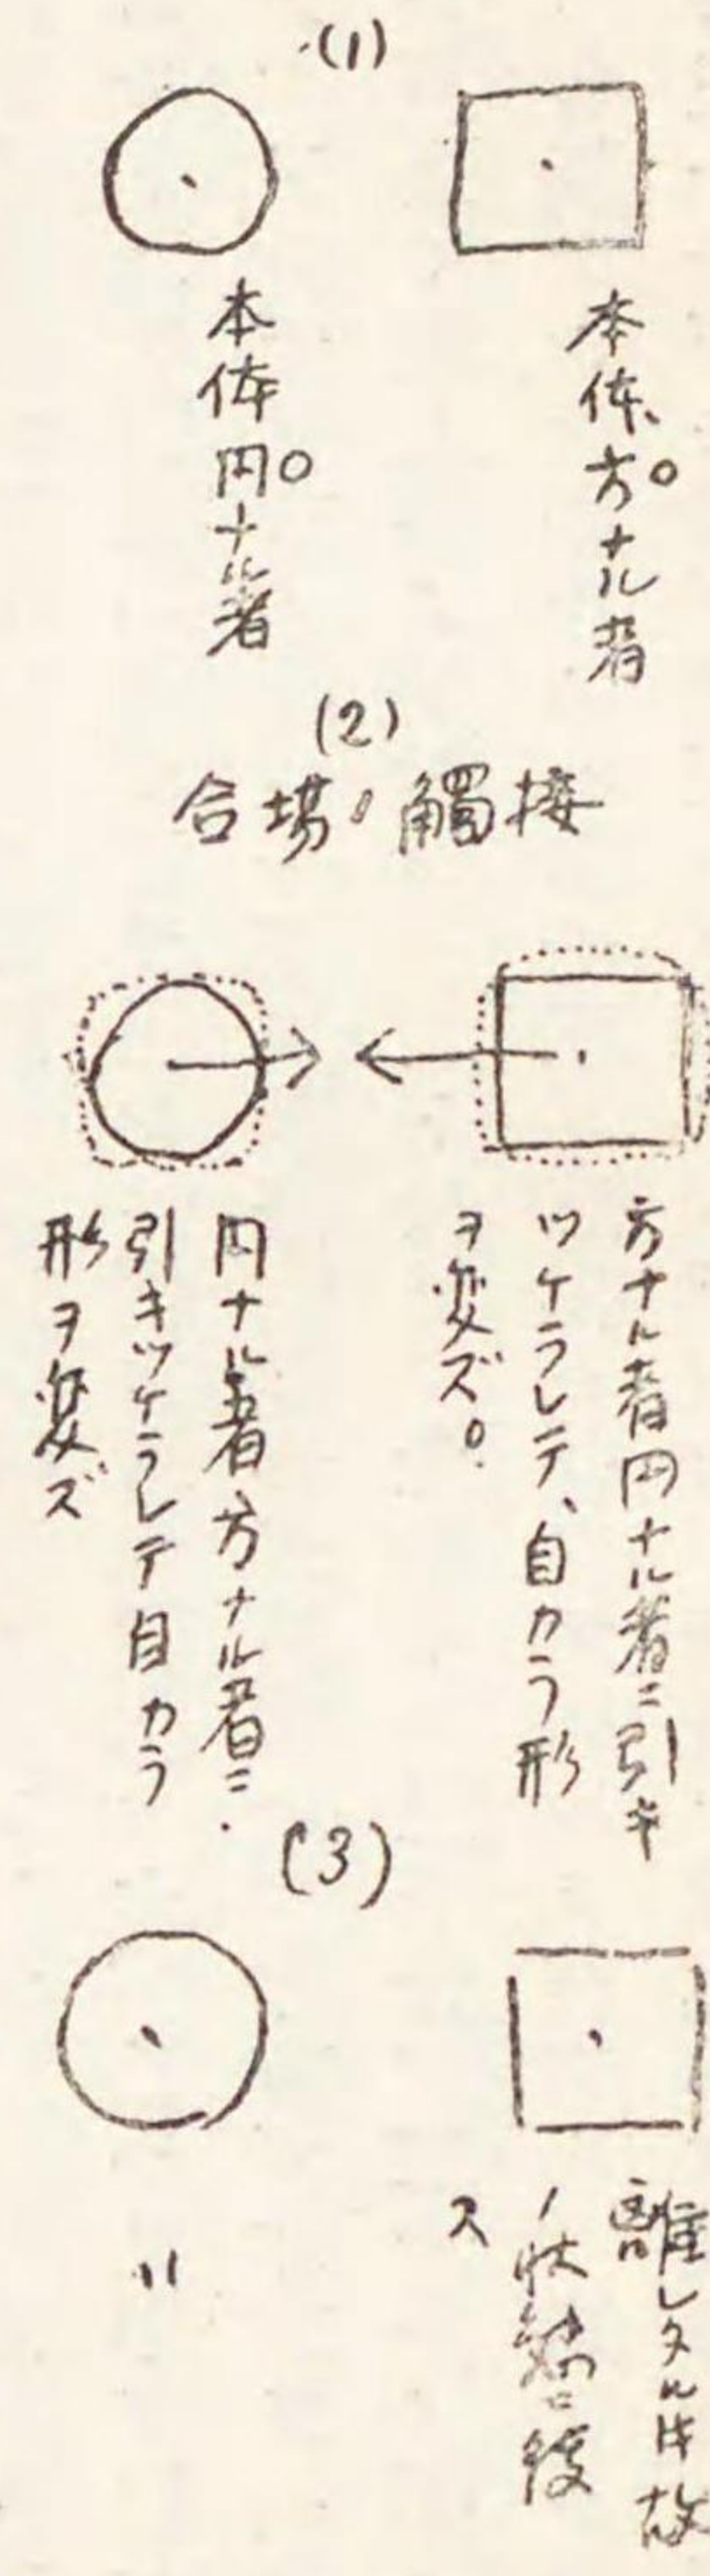 (1)
本体、方ナル者
本体円ナル者
(2)
接觸ノ場合
方ナル者円ナル者ニ引キ
ツケラレテ、自カラ形
ヲ変ズ。
円ナル者方ナル者ニ
引キツケラレテ自カラ
形ヲ変ズ
(3)
離レタルトキ故
ノ状態ニ復
ス
〃